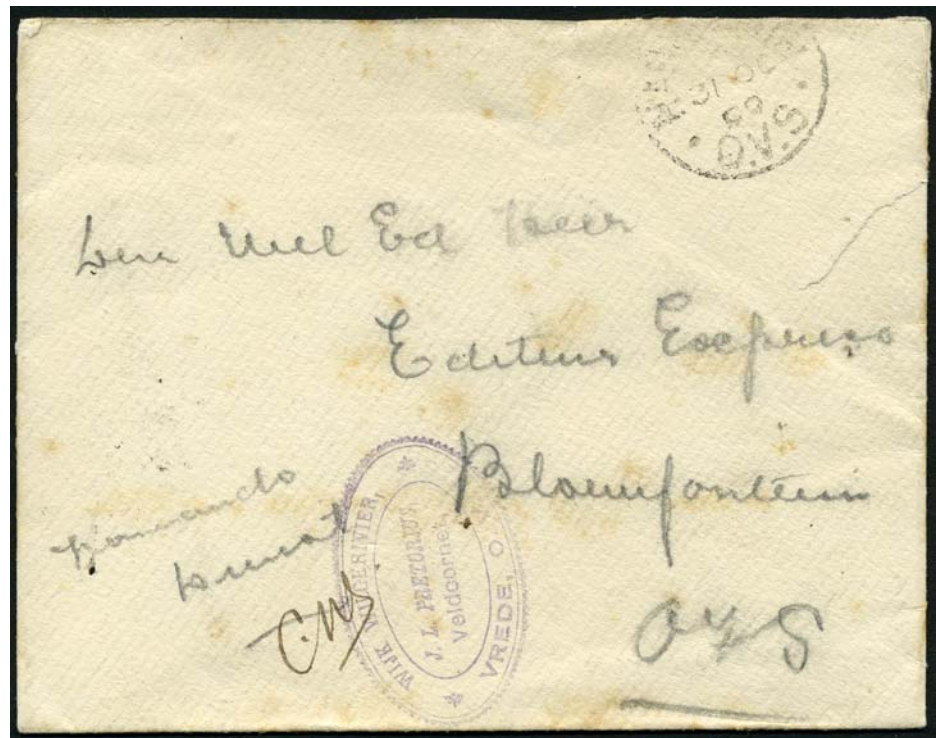 31 OC
99
O.V.S.
Den Wel Ed Heer
Editeur Express
Bloemfontein
OVS
Komando
Dienst
WIJK KLIPRIVIER,
J. L. PRETORIUS,
Veldcornet,
VREDE, O